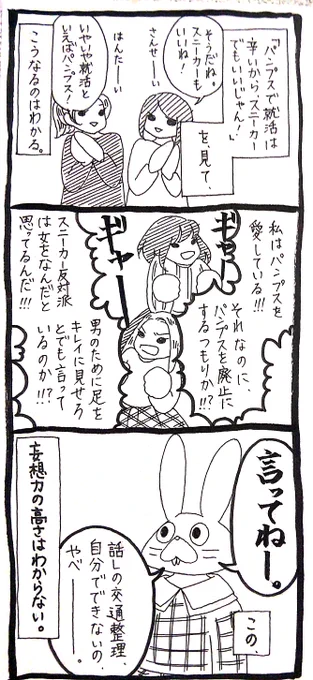 「パンプスで就活は
辛いから、スニーカー
でもいいじゃん！」
を、見て、
そうだね。
スニーカーも
いいね！
さんせーい
はんたーい
いやいや就活と
いえばパンプス！
こうなるのはわかる。
私はパンプスを
愛している!!!
ギャー
それなのに、
パンプスを廃止に
するつもりか!!?
ギャー
スニーカー反対派
は女をなんだと
思ってるんだ!!!
男のために足を
キレイに見せろ
とでも言って
いるのか!!?
言ってねー。
この、
話しの交通整理、
自分でできないの、
やべーー。
妄想力の高さはわからない。